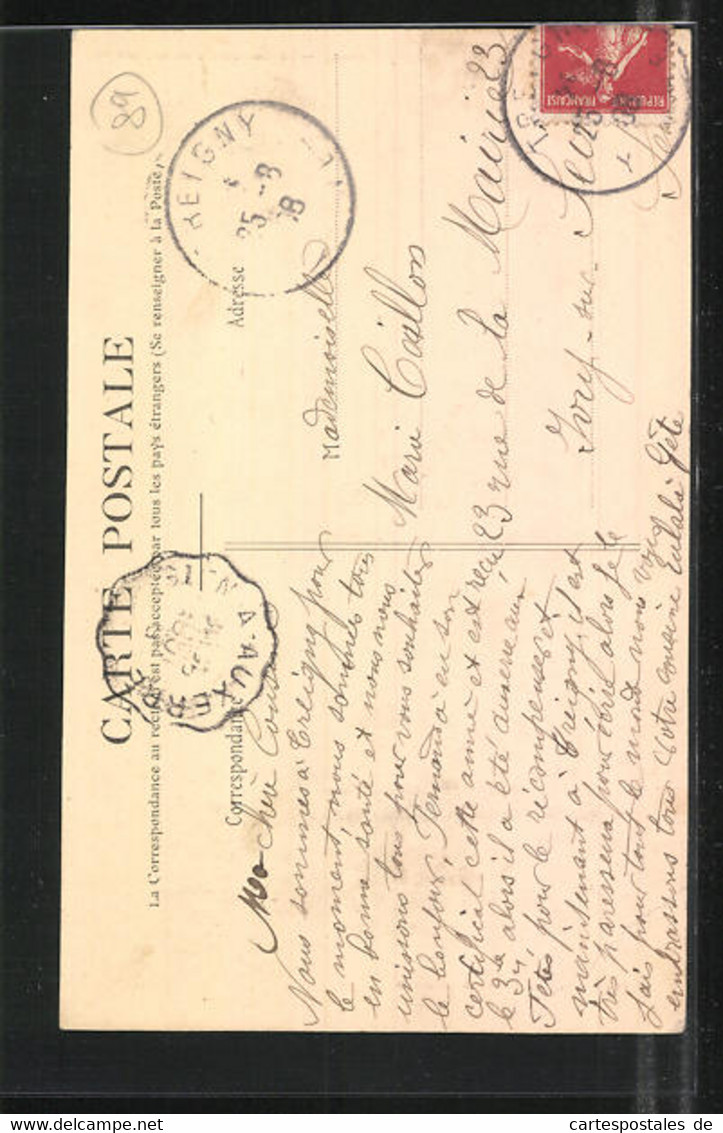 89
CARTE POSTALE
La Correspondance au recto est pas acceptée par tous les pays étrangers (Se renseigner à la Poste)
Correspondance
Adresse
TREIGNY
25 -8
08
D'AUXER
REPUBLIQUE FRANÇAISE
25 -8
08
Ma chère Cousine
Nous sommes à Treigny pour
le moment, nous sommes tous
en bonne santé et nous nous
unissons tous pour vous souhaiter
le bonjour, Fernand a eu son
certificat cette année et est reçu
le 3e alors il a été à Auxerre aux
Fêtes pour le récompenser et
maintenant à Treigny il est
très paresseux pour écrire alors je le
fais pour tout le monde nous vous
embrassons tous Votre cousine Eulalie Gête
Mademoiselle
Marie Caillon
23 rue de la Mairie 23
Ivry-sur-Seine
Seine
www.oldthing.de
cartespostales.de